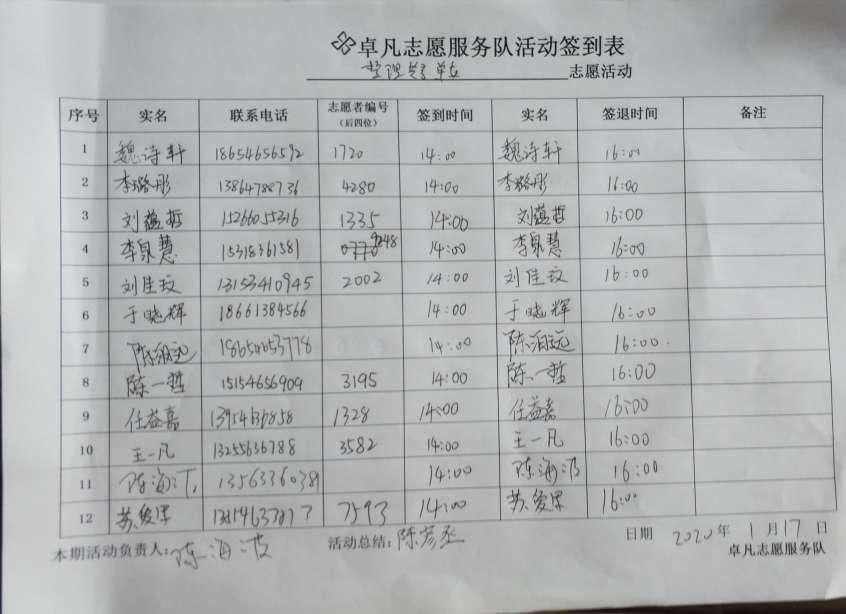 卓凡志愿服务队活动签到表
整理 志愿活动
序号 实名 联系电话 志愿者编号（后四位） 签到时间 实名 签退时间 备注
1 魏诗轩 18654656592 1720 14:00 魏诗轩 16:00
2 李璐彤 13864788736 4280 14:00 李璐彤 16:00
3 刘蕴哲 15266055316 1335 14:00 刘蕴哲 16:00
4 李泉慧 15318361581 9248 14:00 李泉慧 16:00
5 刘佳玟 13153410945 2002 14:00 刘佳玟 16:00
6 于晓辉 18661384566 14:00 于晓辉 16:00
7 14:00 16:00
8 陈一哲 15154656909 3195 14:00 陈一哲 16:00
9 任益嘉 1328 14:00 任益嘉 16:00
10 王一凡 13255636788 3582 14:00 王一凡 16:00
11 陈海波 14:00 陈海波 16:00
12 7593 14:00 16:00
本期活动负责人：陈海波 活动总结：陈彦丞 日期 2020年1月17日
卓凡志愿服务队